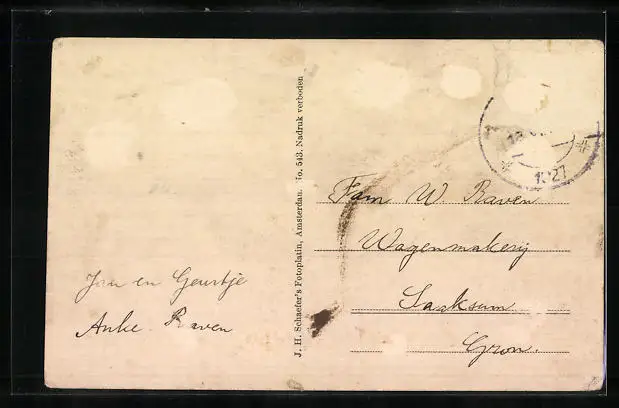 Jan en Geertje
Anke. Raven
J. H. Schaefer's Fotoplatin, Amsterdam. No. 543. Nadruk verboden
1927
Fam W. Raven
Wagenmakerij
Saaksum
Gron.